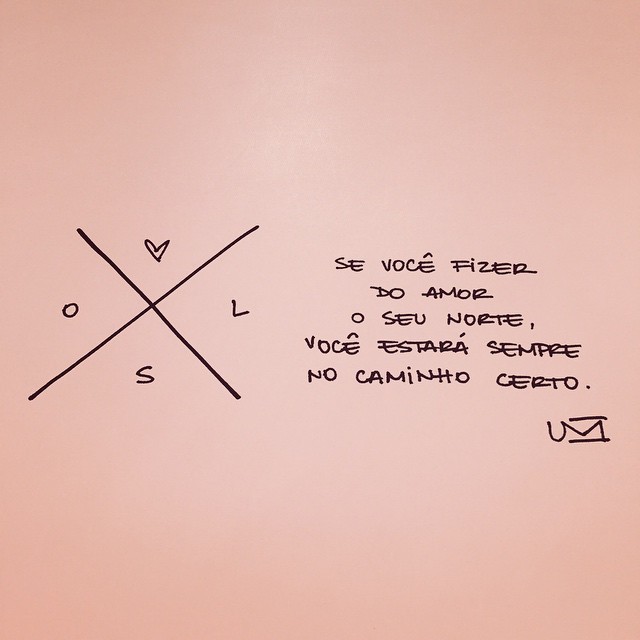 O
L
S
SE VOCÊ FIZER
DO AMOR
O SEU NORTE,
VOCÊ ESTARÁ SEMPRE
NO CAMINHO CERTO.
UM